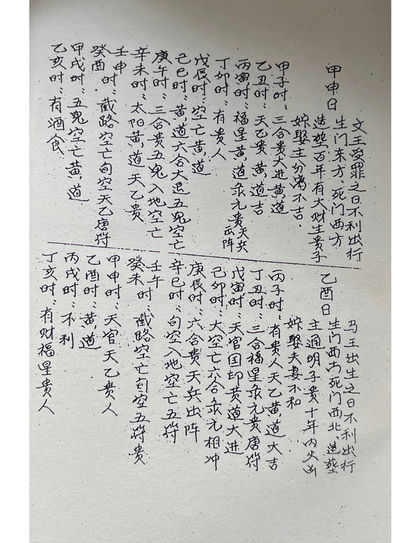 甲申日
文王受罪之日不利出行
生门东方，死门西方
造塋百年有大财生贵子
嫁娶主分离不吉。
甲子时：三合贵大进黄道
乙丑时：天乙贵、黄道吉
丙寅时：福星黄道贵天兵
丁卯时：有贵人
戊辰时：空亡黄道
己巳时：黄道六合大退五鬼空亡
庚午时：三合贵五鬼入地空亡
辛未时：太阳黄道天乙贵
壬申时：
癸酉：截路空亡旬空天乙唐符
甲戌时：五鬼空亡黄道
乙亥时：有酒食
乙酉日
马王出生之日不利出行
生门西南死门西北，造塋
主通明子贵十年内火凶
嫁娶夫妻不和
丙子时：有贵人天乙黄道大吉
丁丑时：三合福星贵唐符
戊寅时：天官国印黄道大进
己卯时：大空亡六合元相冲
庚辰时：六合贵天兵出阵
辛巳时：旬空入地空亡五符
壬午：
癸未时：截路空亡旬空五符贵
甲申时：天官天乙贵人
乙酉时：黄道
丙戌时：不利
丁亥时：有财福星贵人